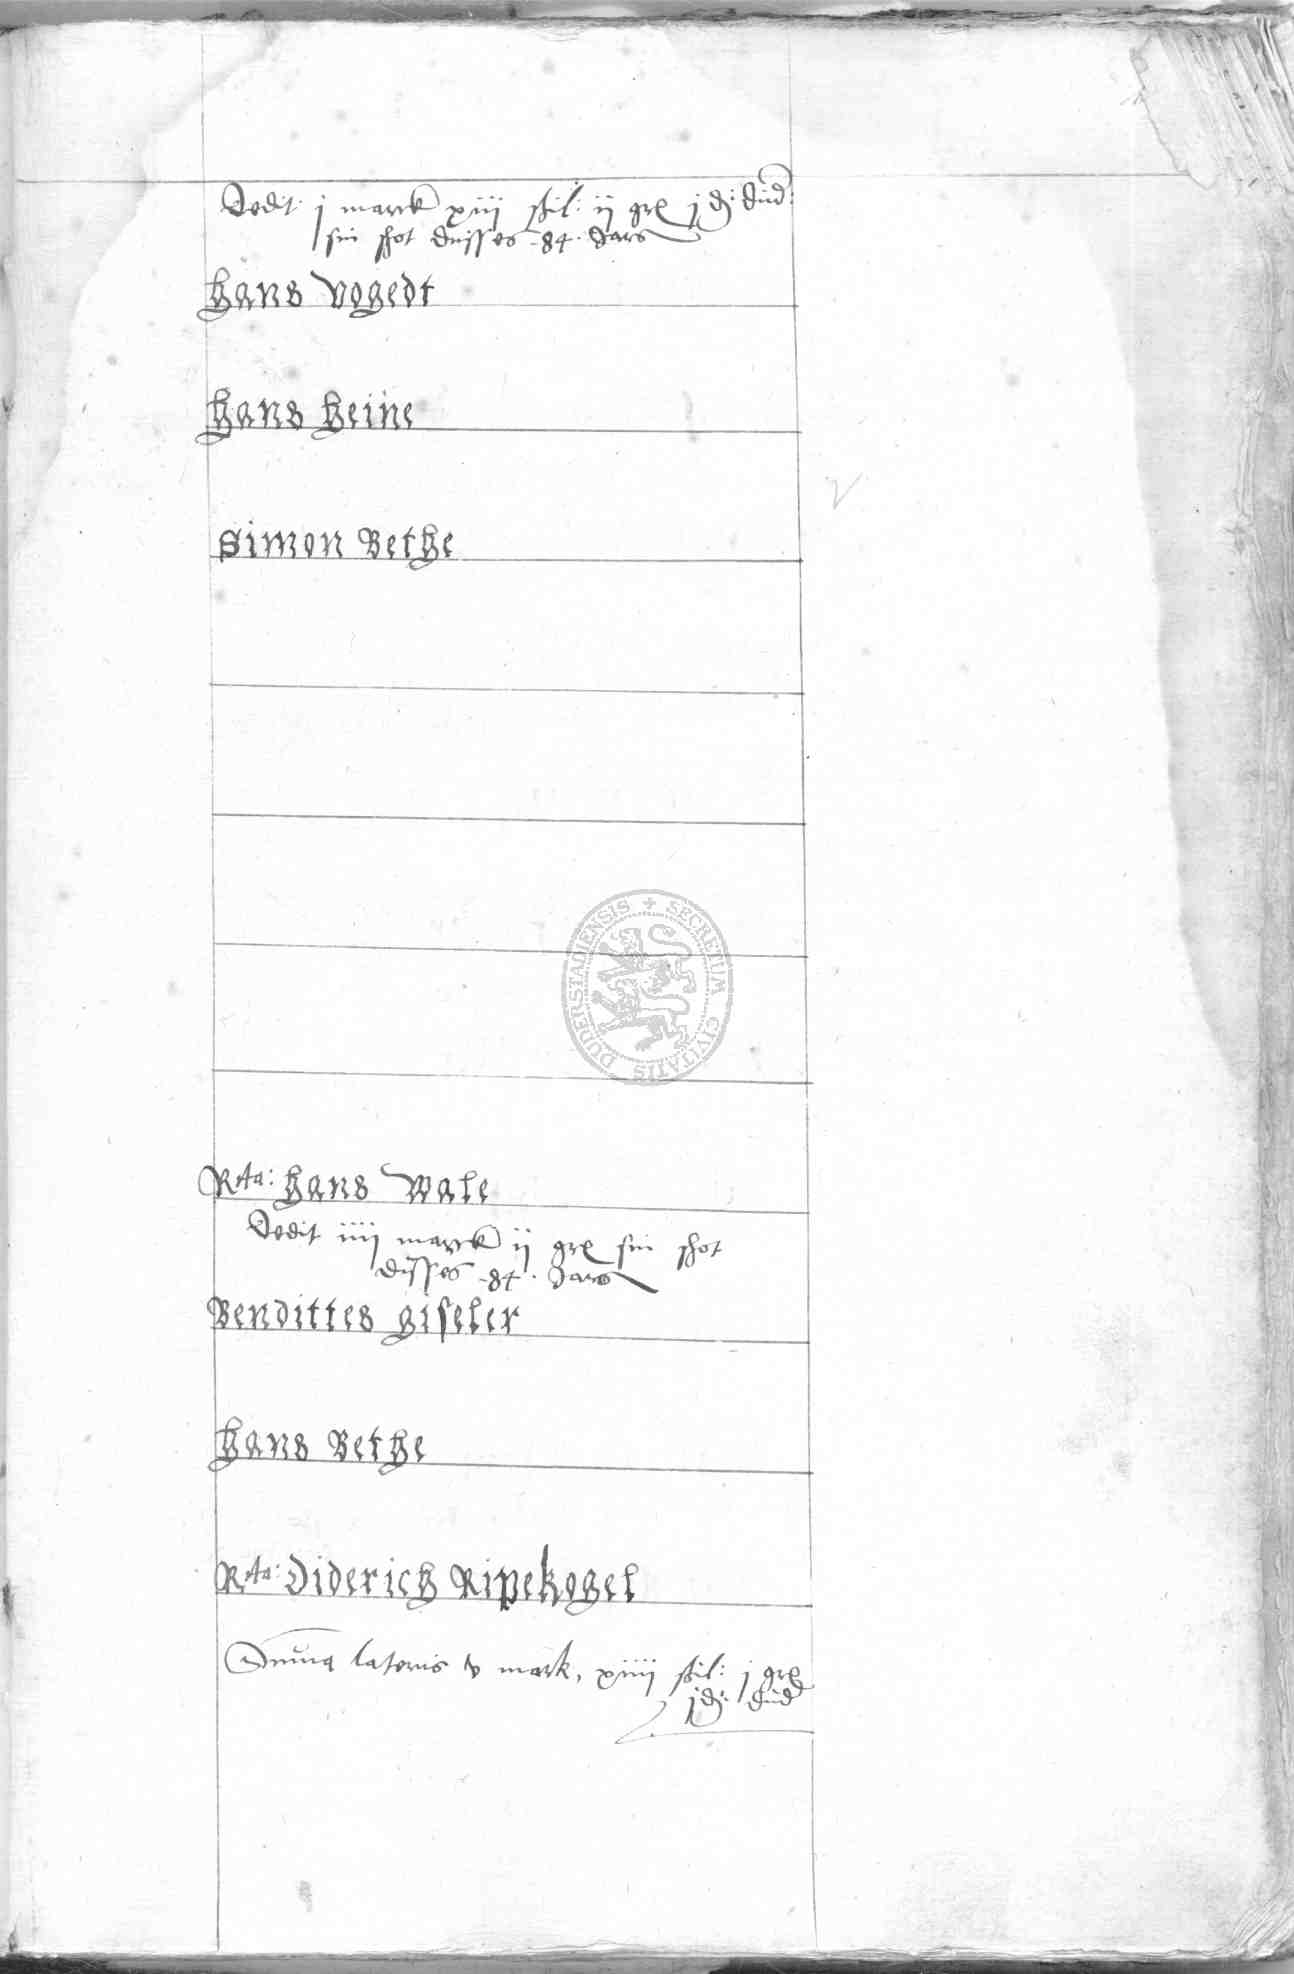 Dedit j marck xiij ßil: ij grl j d: dud:
sin shot dusses 84. Jars
hans vogedt
hans heine
simon Bethe
DUDERSTADIENSIS + SECRETUM CIVITATIS
Rta: hans wale
Dedit iiij marck ij grl sin shot
disses 84. Jars
Bendittes giseler
hans Bethe
Rta: diderich Ripekogel
Suma lateris v mark, xiiij ßil: j grl
j d: dud